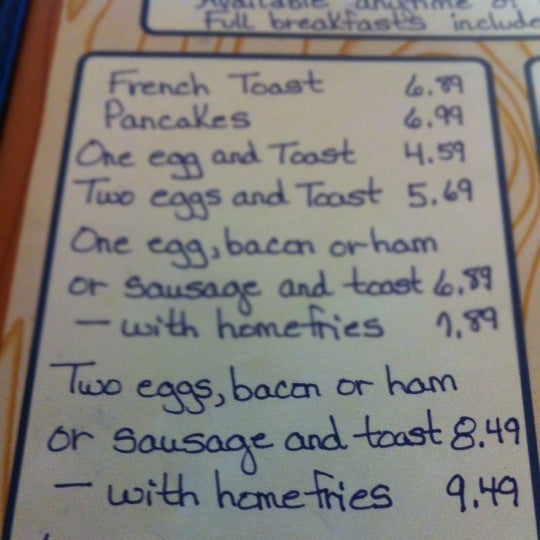 Available anytime
Full breakfasts include
French Toast 6.89
Pancakes 6.99
One egg and Toast 4.59
Two eggs and Toast 5.69
One egg, bacon or ham
or sausage and toast 6.89
— with homefries 7.89
Two eggs, bacon or ham
or sausage and toast 8.49
— with homefries 9.49